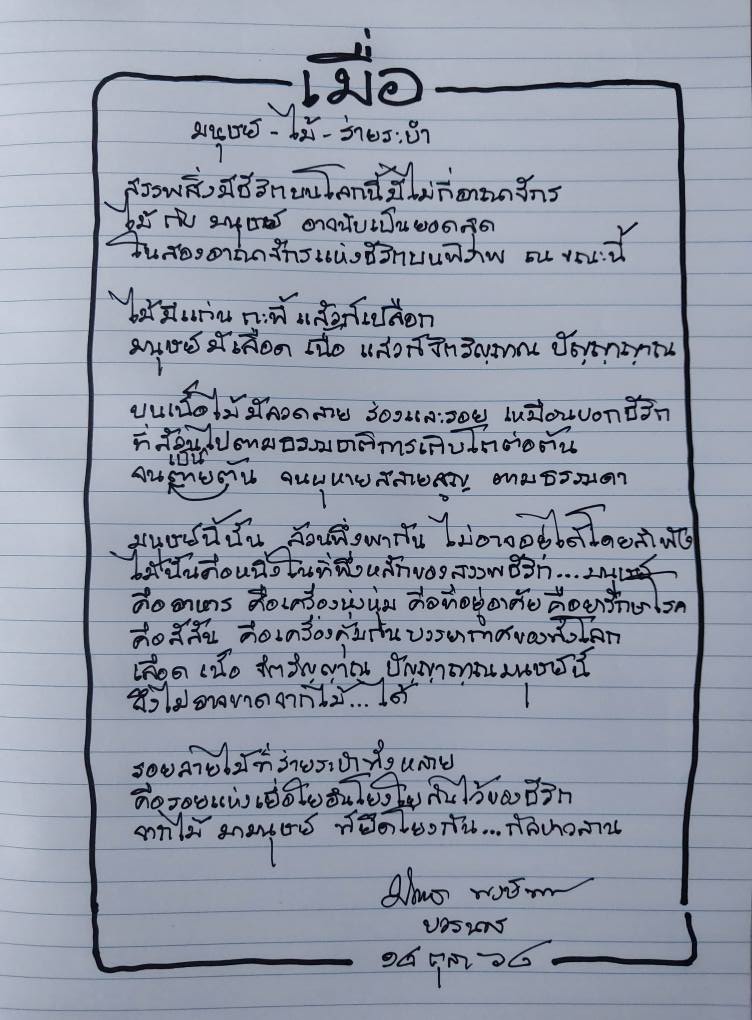 เมื่อ
มนุษย์ - ไม้ - ร่ายระบำ
สรรพสิ่งมีชีวิตบนโลกนี้มีไม่กี่อาณาจักร
ไม้ กับ มนุษย์ อาจนับเป็นยอดสุด
ในสองอาณาจักรแห่งชีวิตบนพิภพ ณ ขณะนี้
ไม้มีแก่น กะพี้ แล้วก็เปลือก
มนุษย์มีเลือด เนื้อ แล้วก็จิตวิญญาณ ปัญญาญาณ
บนเนื้อไม้มีลวดลาย ร่องและรอย เหมือนบอกชีวิต
ที่ล้วนไปตามธรรมชาติการเติบโตต่อต้น
จนตายเป็นต้น จนผุหายสลายสูญ ตามธรรมดา
มนุษย์นี้นั้น ล้วนพึ่งพากัน ไม่อาจอยู่ได้โดยลำพัง
ไม้นั้นคือหนึ่งในที่พึ่งหลักของสรรพชีวิต...มนุษย์
คืออาหาร คือเครื่องนุ่งห่ม คือที่อยู่อาศัย คือยารักษาโรค
คือสีสัน คือเครื่องคุ้มกันบรรยากาศของทั้งโลก
เลือด เนื้อ จิตวิญญาณ ปัญญาญาณมนุษย์นี้
จึงไม่อาจขาดจากไม้...ได้
รอยลายไม้ที่ร่ายระบำทั้งหลาย
คือรอยแห่งเยื่อใยอันโยงใยกันไว้ของชีวิต
จากไม้ มามนุษย์ ที่ยึดโยงกัน...กัลปาวสาน
๑๘ ตุลา ๖๔